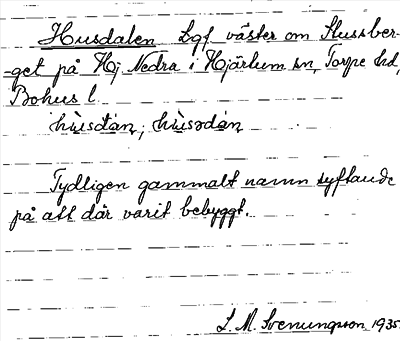 Husdalen Lgf väster om Slussber-
-get på Hj. Nedra i Hjärtum sn, Torpe hd,
Bohus l.
hùsdàn, hùsdàn
Tydligen gammalt namn syftande
på att där varit bebyggt.
L. M. Svenungsson 1935